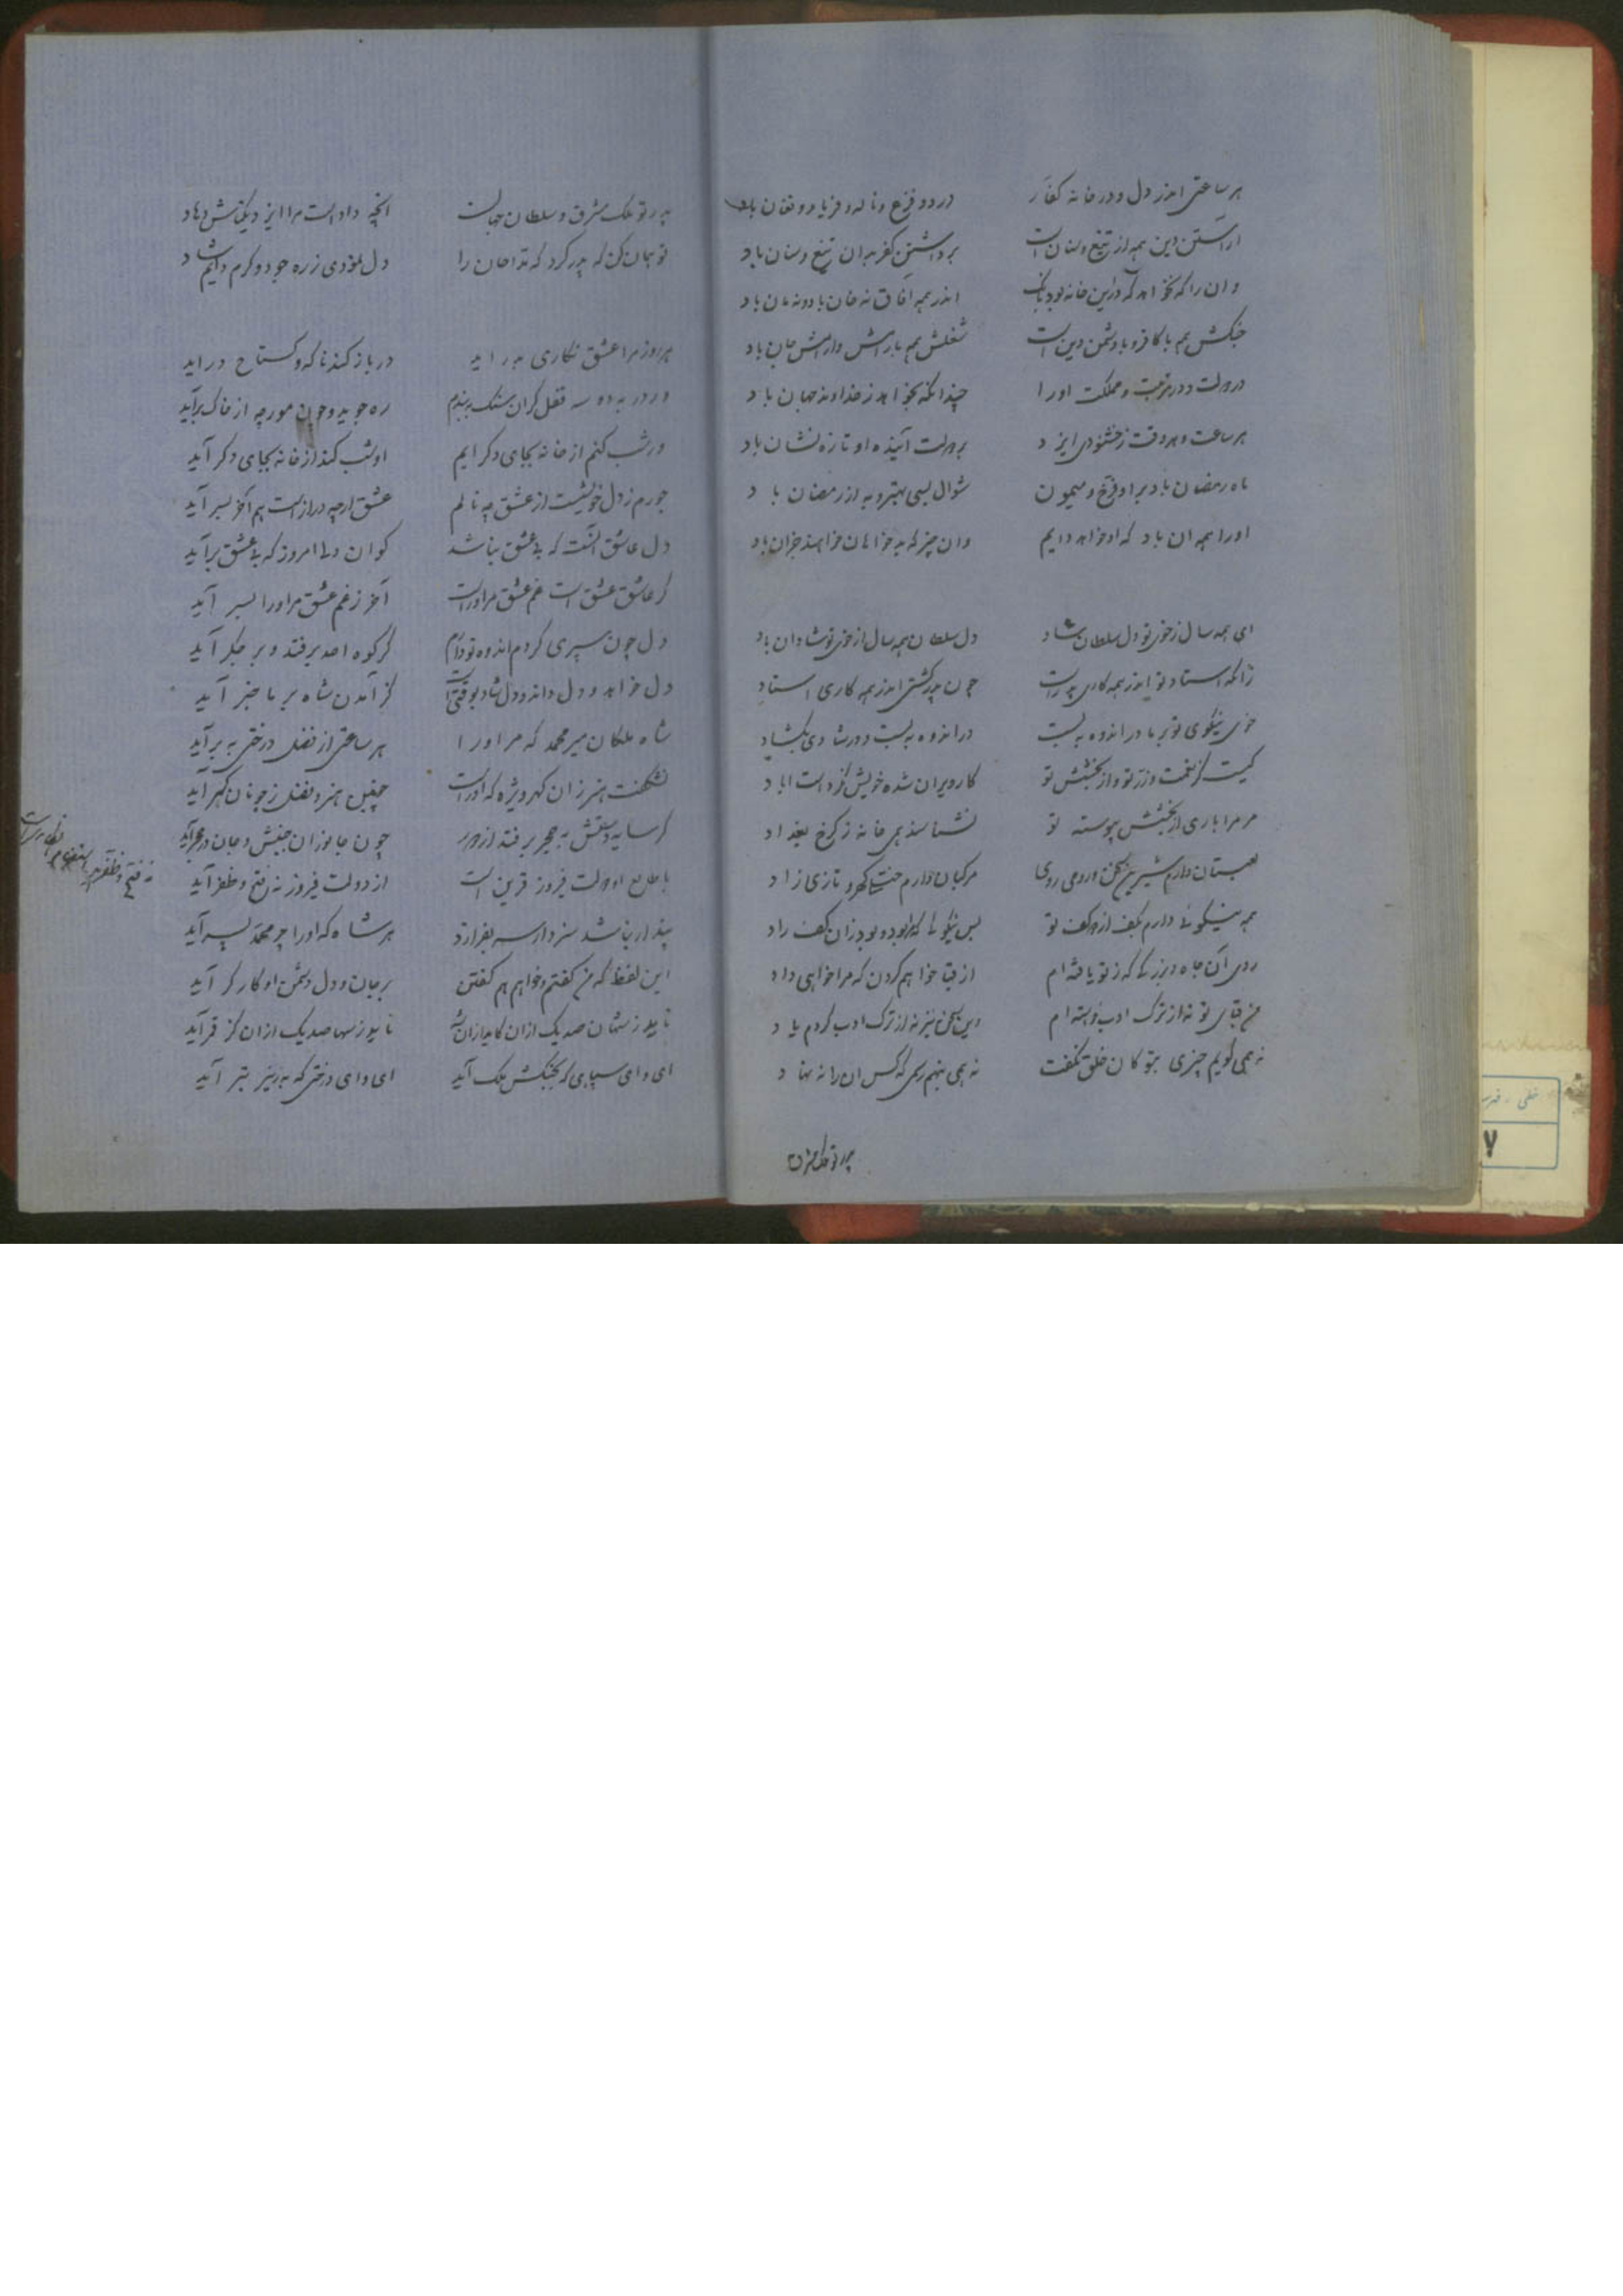 هر ساعتی اندر دل و در خانه کفار در دو فزع و ناله و فریاد و فغان باد
اراستن دین همه از تیغ و سنان است برداشتن کفر بدان تیغ و سنان باد
وان را که نخواهد که درین خانه بود اندر همه افاق نه خان باد و نه مان باد
جنکش همه با کافر و با دشمن دین است شغلش همه با رامش و ارامش جان باد
در دولت و در مرتبت و مملکت او را چندانکه بخواهد ز خداوند جهان باد
هر ساعت و هر وقت ز خشنودی ایزد بر دولت آینده او تازه نشان باد
ماه رمضان باد بر او فرخ و میمون شوال بسی بهتر و به از رمضان باد
او را همه ان باد که او خواهد دایم وان چیز که بدخواهان خواهند جز ان باد
ای همه سال ز خوی تو دل سلطان شاد دل سلطان همه سال از خوی تو شادان باد
زانکه استاد تو اندر همه کاری پدر است چون پدر کشتی اندر همه کاری استاد
خوی نیکوی تو بر ما در اندوه ببست در اندوه ببست و در شادی بکشاد
کیست کز نعمت و از بخشش تو کار ویران شده خویش نکرده است اباد
مر مرا باری از بخشش پیوسته تو نشناسند همی خانه ز کرخ بغداد
لعبتان دارم شیرین سخن و رومی روی مرکبان دارم ختلی کهر و تازی زاد
همه نیکوئی دارم بکف از دو کف تو بس نیکوئی کم بود و بود زان کف راد
روی آن جاه و بزرکی که ز تو یافته ام از قبا خواهم کردن که مرا خواهی داد
من قبای تو نه از ترک ادب خواسته ام این سخن نیز نه از ترک ادب کردم یاد
نه همی کویم چیزی بتو کان خلق نکفت نه همی بنهم رسمی که کس ان را ننهاد
پدر تو ملک مشرق
پدر تو ملک مشرق و سلطان جهانست انچه داد است مرا ایزد دیکتاش دهاد
تو همان کن که پدر کرد که تا جان را دل بمؤدی ز ره جود و کرم دایم شاد
هر روز مرا عشق نکاری بدر اید در باز کند ناکه و کستاخ دراید
ور در به دو سه قفل کران سنک ببندم ره جوید و چون مورچه از خاک برآید
ور شب کنم از خانه بجای دکر ایم او شب کند از خانه بجای دکر آید
جورم ز دل خویشست از عشق چه نالم عشق ارچه دراز است هم آخر بسر آید
دل عاشق آنست که بی عشق نباشد کو ان دل امروز که بی عشق برآید
کر عاشق عشق است غم عشق مر او راست آخر ز غم عشق مر او را بسر آید
دل چون سپری کردم اندوه تو دایم کر کوه احد برفتد و بر جکر آید
دل خواهد و دل داند و دل شاد بوقتی است کز آمدن شاه بر ما خبر آید
شاه ملکان میر محمد که مر او را هر ساعتی از فضل درختی به برآید
نشکفت هنر زان کهر ویژه که او راست چونین هنر و فضل ز چونان کهر آید
کر سایه دستش به حجر برفتد از دور چون جانوران جنبش و جان در حجر آید
با طالع او دولت فیروز قرین است از دولت فیروز نه فتح و ظفر آید
پندار نباشد سزد ار سر بفرازد هر شاه که او را چو محمد پسر آید
این لفظ که من کفتم و خواهم هم کفتن بر جان و دل دشمن او کارکر آید
ناید ز شهان صد یک ازان کاید ازان شه ناید ز سها صد یک ازان کز قمر آید
ای وای سپاهی که بجنکش ملک آید ای وای درختی که به زیر تبر آید
نه فتح و ظفر
۷